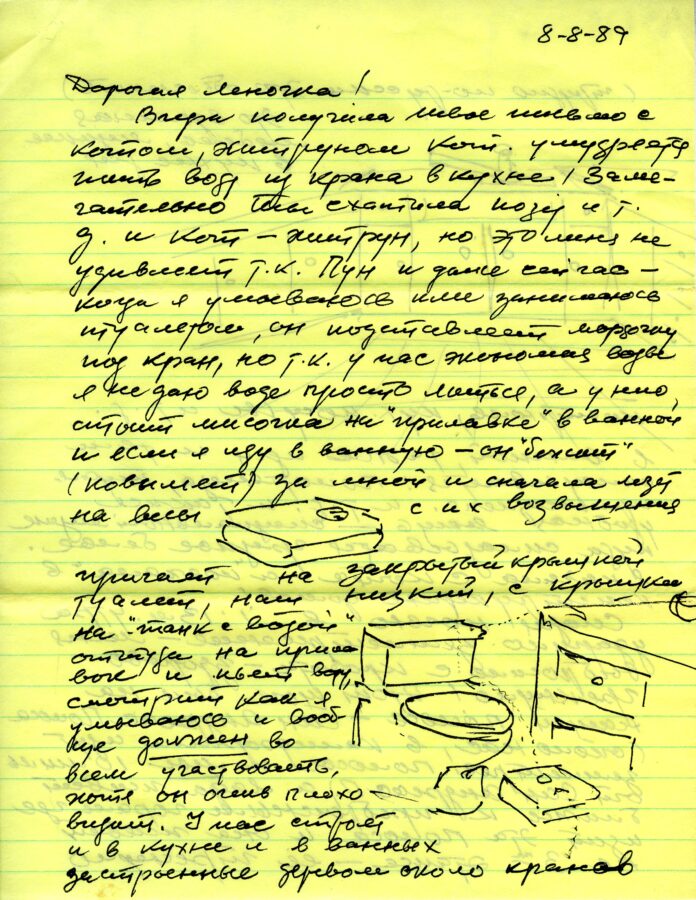 8-8-89
Дорогая Леночка!
Вчера получила твое письмо с
котом, хитруном кот. умудряется
пить воду из крана в кухне! Заме-
чательно ты схватила позу и т.
д. и кот – хитрун, но это меня не
удивляет т.к. Пун и даже сейчас –
когда я умываюсь или занимаюсь
туалетом, он подставляет мордочку
под кран, но т.к. у нас экономия воды
я не даю воде просто литься, а у него,
стоит мисочка на "прилавке" в ванной
и если я иду в ванную – он "бежит"
(ковыляет) за мной и сначала лезет
на весы с их возвышения
прыгает на закрытый крышкой
туалет, наш низкий, с крышки
на "танк с водой"
оттуда на прила
вок и пьет воду,
смотрит как я
умываюсь и вооб
ще должен во
всем участвовать,
хотя он очень плохо
видит. У нас стоят
и в кухне и в ванных
застроенные деревом около кранов